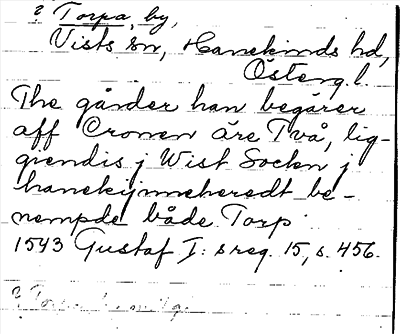 ? Torpa, by,
Vists sn, Hanekinds hd,
Österg. l.
The gårder han begärer
aff Cronen äre Två, lig-
gendis j Wist Sockn j
hanekijnneheredt be-
nempde både Torp
1543 Gustaf I: s reg. 15, s. 456.
? Torpa